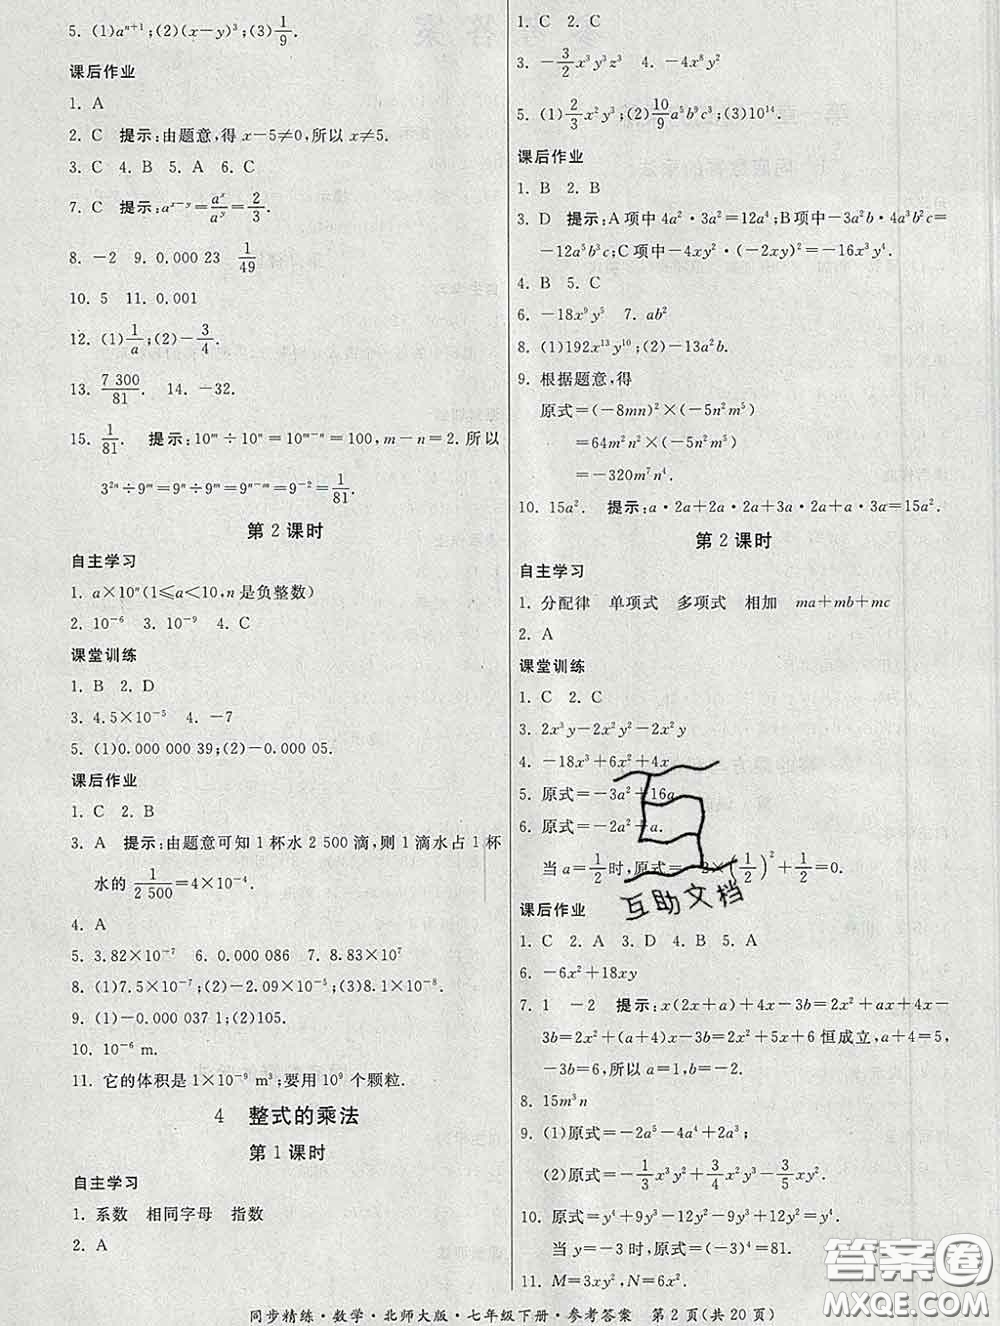 5. (1)aⁿ⁺¹;(2)(x−y)³;(3)1/9.
课后作业
1. A
2. C 提示:由题意,得 x−5≠0,所以 x≠5.
3. C 4. B 5. A 6. C
7. C 提示:a^(x−y)=a^x/a^y=2/3.
8. −2 9. 0.000 23 1/49
10. 5 11. 0.001
12. (1)1/a;(2)−3/4.
13. 7 300/81. 14. −32.
15. 1/81. 提示:10^m÷10^n=10^(m−n)=100,m−n=2. 所以
3^(2n)÷9^m=9^n÷9^m=9^(n−m)=9^(−2)=1/81.
第 2 课时
自主学习
1. a×10ⁿ(1≤a<10,n 是负整数)
2. 10⁻⁶ 3. 10⁻⁹ 4. C
课堂训练
1. B 2. D
3. 4.5×10⁻⁵ 4. −7
5. (1)0.000 000 39;(2)−0.000 05.
课后作业
1. C 2. B
3. A 提示:由题意可知 1 杯水 2 500 滴,则 1 滴水占 1 杯
水的 1/2 500=4×10⁻⁴.
4. A
5. 3.82×10⁻⁷ 6. 0.000 086 7. 8.83×10⁷
8. (1)7.5×10⁻⁷;(2)−2.09×10⁻⁵;(3)8.1×10⁻⁸.
9. (1)−0.000 037 1;(2)105.
10. 10⁻⁶ m.
11. 它的体积是 1×10⁻⁹ m³;要用 10⁹ 个颗粒.
4 整式的乘法
第 1 课时
自主学习
1. 系数 相同字母 指数
2. A
1. C 2. C
3. −3/2x³y³z³ 4. −4x⁸y²
5. (1)2/3x²y³;(2)10/9a⁵b⁹c³;(3)10¹⁴.
课后作业
1. B 2. B
3. D 提示:A 项中 4a²·3a²=12a⁴;B 项中−3a²b·4a³b²c=
−12a⁵b³c;C 项中−4xy²·(−2xy)²=−16x³y⁴.
4. B 5. C
6. −18x⁹y⁵ 7. ab²
8. (1)192x¹³y¹⁰;(2)−13a²b.
9. 根据题意,得
原式=(−8mn)²×(−5n²m⁵)
=64m²n²×(−5n²m⁵)
=−320m⁷n⁴.
10. 15a². 提示:a·2a+2a·2a+3a·2a+a·3a=15a².
第 2 课时
自主学习
1. 分配律 单项式 多项式 相加 ma+mb+mc
2. A
课堂训练
1. C 2. C
3. 2x³y−2x²y²−2x²y
4. −18x³+6x²+4x
5. 原式=−3a²+16a.
6. 原式=−2a²+a.
当 a=1/2时,原式=−2×(1/2)²+1/2=0.
互助文档
课后作业
1. C 2. A 3. D 4. B 5. A
6. −6x²+18xy
7. 1 −2 提示:x(2x+a)+4x−3b=2x²+ax+4x−
3b=2x²+(a+4)x−3b=2x²+5x+6 恒成立,a+4=5,
−3b=6,所以 a=1,b=−2.
8. 15m³n
9. (1)原式=−2a⁵−4a⁴+2a²;
(2)原式=−1/3x³y²+3/4x²y−3/5xy².
10. 原式=y⁴+9y³−12y²−9y³+12y²=y⁴.
当 y=−3 时,原式=(−3)⁴=81.
11. M=3x²,N=4x³.
答案圈
MXQE.COM
同步精练·数学·北师大版·七年级下册·参考答案 第 2 页(共 20 页)